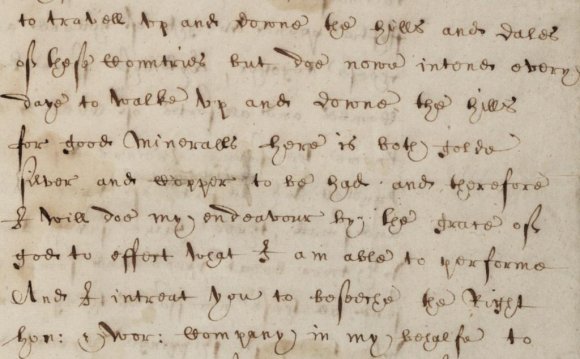 to travell vp and downe the hills and dales
of these Countries but doe nowe intend every
daye to walke vp and downe the hills
for good Mineralls here is both golde
silver and Copper to be had and therefore
I will doe my endeavour by the grace of
god to effect what I am able to performe
And I intreat you to beseche the Right
hon: & wor: Company in my behalfe to